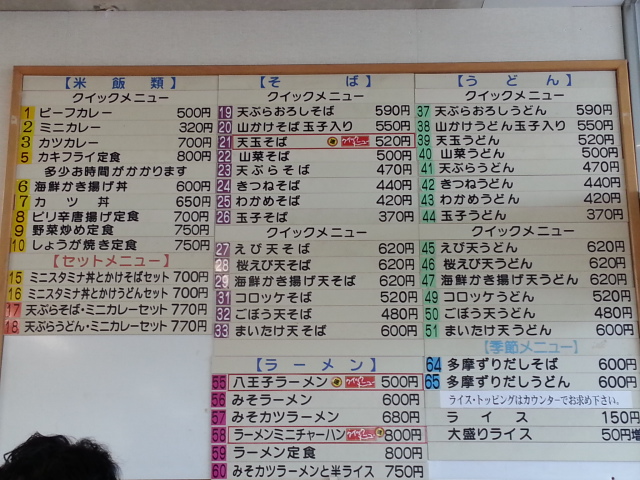 【米飯類】
クイックメニュー
1 ビーフカレー 500円
2 ミニカレー 320円
3 カツカレー 700円
5 カキフライ定食 800円
多少お時間がかかります
6 海鮮かき揚げ丼 600円
7 カツ丼 650円
8 ピリ辛唐揚げ定食 700円
9 野菜炒め定食 750円
10 しょうが焼き定食 750円
【セットメニュー】
15 ミニスタミナ丼とかけそばセット 700円
16 ミニスタミナ丼とかけうどんセット 700円
17 天ぷらそば・ミニカレーセット 770円
18 天ぷらうどん・ミニカレーセット 770円
【そば】
クイックメニュー
19 天ぷらおろしそば 590円
20 山かけそば 玉子入り 550円
21 天玉そば 520円
22 山菜そば 500円
23 天ぷらそば 470円
24 きつねそば 440円
25 わかめそば 420円
26 玉子そば 370円
クイックメニュー
27 えび天そば 620円
28 桜えび天そば 620円
29 海鮮かき揚げ天そば 620円
31 コロッケそば 520円
32 ごぼう天そば 480円
33 まいたけ天そば 600円
【ラーメン】
55 八王子ラーメン 500円
56 みそラーメン 600円
57 みそカツラーメン 680円
58 ラーメンミニチャーハン 800円
59 ラーメン定食 800円
60 みそカツラーメンと半ライス 750円
【うどん】
クイックメニュー
37 天ぷらおろしうどん 590円
38 山かけうどん 玉子入り 550円
39 天玉うどん 520円
40 山菜うどん 500円
41 天ぷらうどん 470円
42 きつねうどん 440円
43 わかめうどん 420円
44 玉子うどん 370円
クイックメニュー
45 えび天うどん 620円
46 桜えび天うどん 620円
47 海鮮かき揚げ天うどん 620円
49 コロッケうどん 520円
50 ごぼう天うどん 480円
51 まいたけ天うどん 600円
【季節メニュー】
64 多摩ずりだしそば 600円
65 多摩ずりだしうどん 600円
ライス・トッピングはカウンターでお求め下さい。
ライス 150円
大盛りライス 50円増